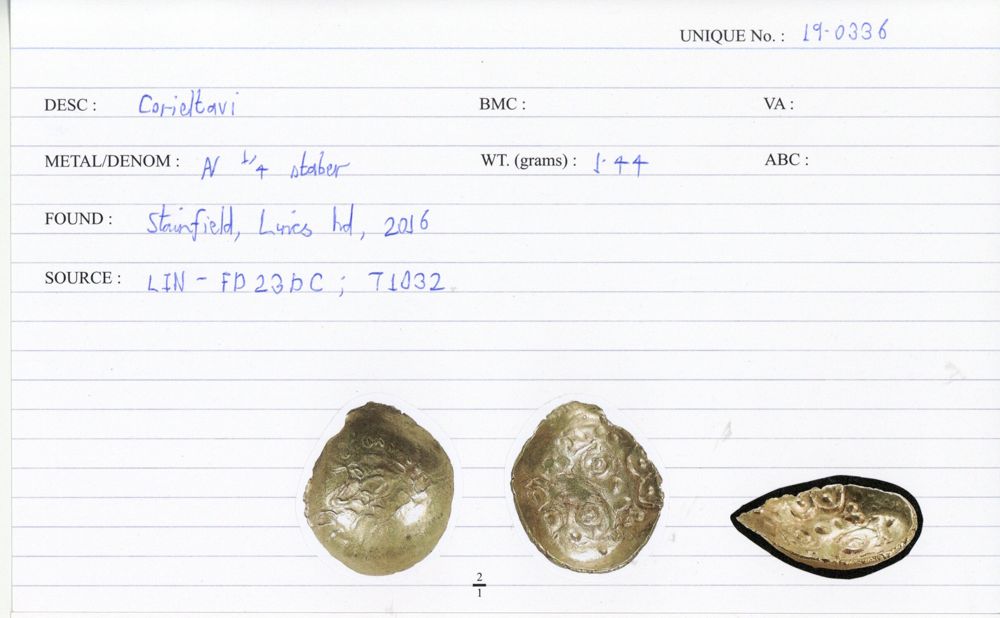 UNIQUE No. : 19-0336
DESC : Corieltavi BMC : VA :
METAL/DENOM : N 1/4 stater WT. (grams) : 1.44 ABC :
FOUND : Stainfield, Lincs hd, 2016
SOURCE : LIN - FD23DC ; T1032
2/1